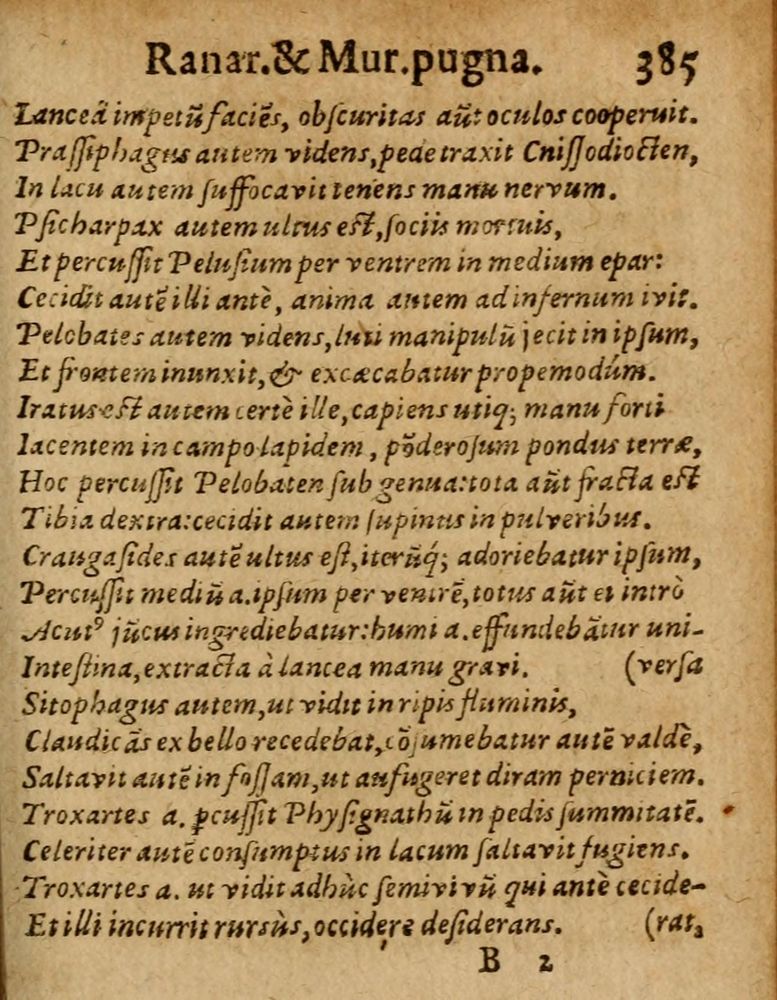 Ranar.& Mur.pugna. 385
Lanceâ impetū faciēs, obſcuritas aūt oculos cooperuit.
Praſſiphagus autem videns,pede traxit Cniſſodiocten,
In lacu autem ſuffocavit tenens manu nervum.
Pſicharpax autem ultus eſt,ſociis mortuis,
Et percuſſit Peluſium per ventrem in medium epar:
Cecidit autē illi antè, anima autem ad infernum ivit.
Pelobates autem videns,luti manipulū jecit in ipſum,
Et frontem inunxit,& excæcabatur propemodúm.
Iratus eſt autem certè ille,capiens utiq; manu forti
Iacentem in campo lapidem, pōderoſum pondus terræ,
Hoc percuſſit Pelobaten ſub genua:tota aūt fracta eſt
Tibia dextra:cecidit autem ſupinus in pulveribus.
Craugaſides autē ultus eſt,iterūq́; adoriebatur ipſum,
Percuſſit mediū a.ipſum per ventrē,totus aūt ei intrò
Acutꝰ jūcus ingrediebatur:humi a.effundebātur uni-
Inteſtina,extracta à lancea manu gravi. (verſa
Sitophagus autem,ut vidit in ripis fluminis,
Claudicās ex bello recedebat,cōſumebatur autē valdè,
Saltavit autē in foſſam,ut aufugeret diram perniciem.
Troxartes a. ꝑcuſſit Phyſignathū in pedis ſummitatē.
Celeriter autē conſumptus in lacum ſaltavit fugiens.
Troxartes a. ut vidit adhùc ſemivivū qui antè cecide-
Et illi incurrit rursùs,occidere deſiderans. (rat,
B 2